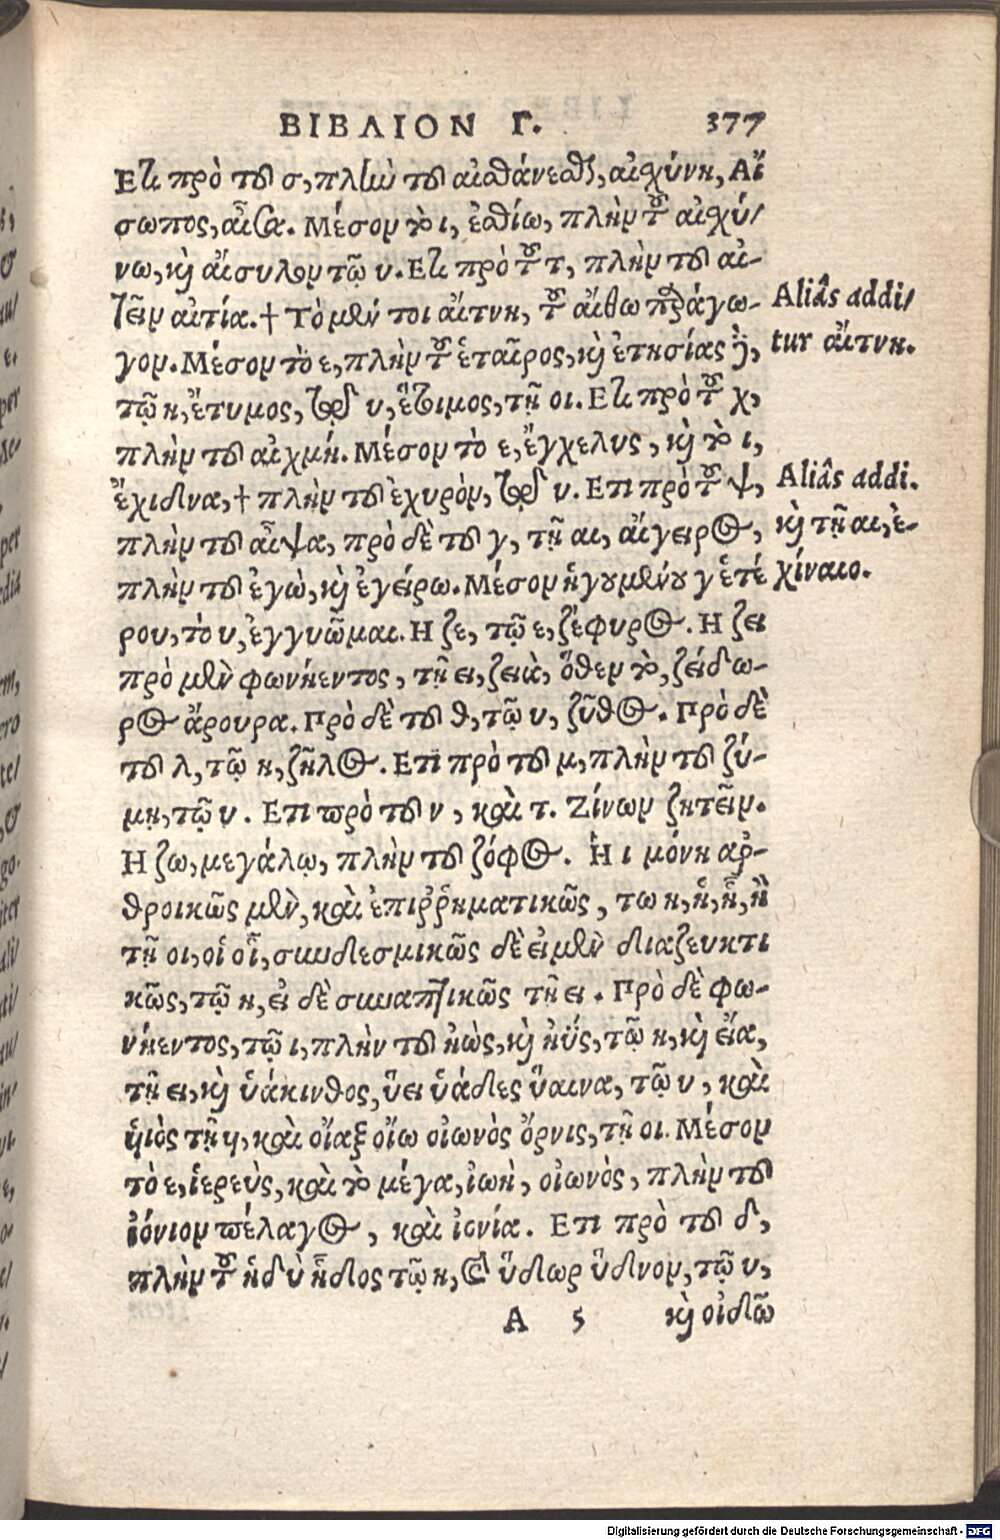 ΒΙΒΛΙΟΝ Γ. 377
Ετι πρὸ τοῦ σ, πλὴν τοῦ αἰσθάνεσθαι, αἰσχύνη, Αἴ
σωπος, αἶσα. Μέσον τὸ ι, ἐσθίω, πλὴν τοῦ αἰσχύ/
νω, καὶ αἴσυλον τῷ υ. Ετι πρὸ τοῦ τ, πλὴν τοῦ αἰ-
τεῖν αἰτία. † Τὸ μέν τοι αἴτνη, τοῦ αἴθω παράγω-
γον. Μέσον τὸ ε, πλὴν τοῦ ἑταῖρος, καὶ ἐτησίας ᾖ,
τῷ η, ἔτυμος, τοῦ δὲ υ, ἕτιμος, τῇ οι. Ετι πρὸ τοῦ χ,
πλὴν τοῦ αἰχμή. Μέσον τὸ ε, ἔγχελυς, καὶ τὸ ι,
ἔχιδνα, † πλὴν τοῦ ἐχυρόν, τοῦ δὲ υ. Ετι πρὸ τοῦ ψ,
πλὴν τοῦ αἶψα, πρὸ δὲ τοῦ γ, τῇ αι, αἴγειρος,
πλὴν τοῦ ἐγὼ, καὶ ἐγείρω. Μέσον ἡγουμένου γ ἑτέ
ρου, τὸ υ, ἐγγυῶμαι. Η ζε, τῷ ε, ζέφυρος. Η ζει
πρὸ μὲν φωνήεντος, τῇ ει, ζειὰ, ὅθεν τὸ, ζείδω-
ρος ἄρουρα. Πρὸ δὲ τοῦ θ, τῷ υ, ζῦθος. Πρὸ δὲ
τοῦ λ, τῷ η, ζῆλος. Ετι πρὸ τοῦ μ, πλὴν τοῦ ζύ-
μη, τῷ υ. Ετι πρὸ τοῦ ν, καὶ τ. Ζίνων ζητεῖν.
Η ζω, μεγάλῳ, πλὴν τοῦ ζόφος. Ἡ ι μόνη ἀρ-
θροικῶς μὲν, καὶ ἐπιῤῥηματικῶς, τω η, ἡ, ἧ, ἢ
τῇ οι, οἱ οἷ, συνδεσμικῶς δὲ εἰ μὲν διαζευκτι
κῶς, τῷ η, εἰ δὲ συναπτικῶς τῇ ει. Πρὸ δὲ φω-
νήεντος, τῷ ι, πλὴν τοῦ ἠὼς, καὶ ἠΰς, τῷ η, καὶ εἴα,
τῇ ει, καὶ ὑάκινθος, ὕει ὑάδες ὕαινα, τῷ υ, καὶ
υἱὸς τῇ υι, καὶ οἴαξ οἴω οἰωνὸς ὄρνις, τῇ οι. Μέσον
τὸ ε, ἱερεὺς, καὶ τὸ μέγα, ἰωὴ, οἰωνὸς, πλὴν τοῦ
ἰόνιον πέλαγος, καὶ ἰονία. Ετι πρὸ τοῦ δ,
πλὴν τοῦ ἡδὺ ἥδιος τῷ η, καὶ ὕδωρ ὕδνον, τῷ υ,
A 5 καὶ οἰδῶ
Aliâs addi/
tur αἴτνη.
Aliâs addi.
καὶ τῇ αι, ἐ-
χίναιο.
Digitalisierung gefördert durch die Deutsche Forschungsgemeinschaft - DFG